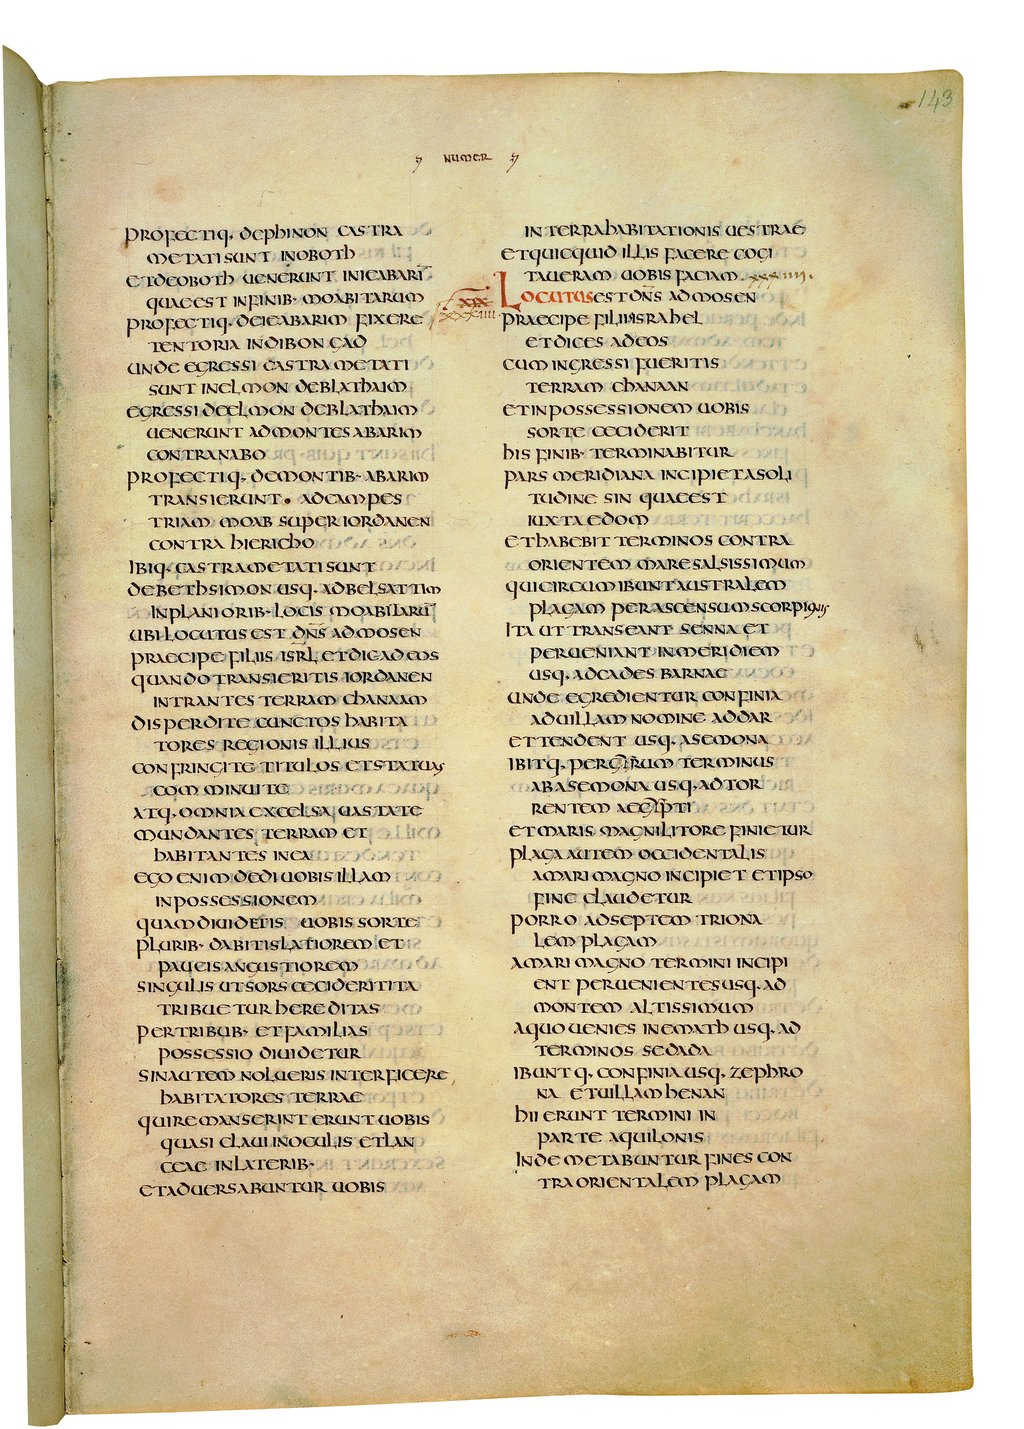 143
NUMER
PROFECTIQ· DEPHINON CASTRA
METATI SUNT INOBOTH
ETDEOBOTH UENERUNT INIEABARI̅
QUAE EST INFINIB· MOABITARUM
PROFECTIQ· DEIEABARIM FIXERE
TENTORIA INDIBON GAD
UNDE EGRESSI CASTRA METATI
SUNT INELMON DEBLATHAIM
EGRESSI DEELMON DEBLATHAIM
UENERUNT AD MONTES ABARIM
CONTRA NABO
PROFECTIQ· DEMONTIB· ABARIM
TRANSIERUNT· ADCAMPES
TRIAM MOAB SUPER IORDANEN
CONTRA HIERICHO
IBIQ· CASTRA METATI SUNT
DE BETHSIMON USQ· AD BELSATTIM
INPLANIORIB· LOCIS MOABITARU̅
UBI LOCUTUS EST DN̅S AD MOSEN
PRAECIPE FILIIS ISRL̅ ET DIC AD EOS
QUANDO TRANSIERITIS IORDANEN
INTRANTES TERRAM CHANAAM
DISPERDITE CUNCTOS HABITA
TORES REGIONIS ILLIUS
CONFRINGITE TITULOS ET STATUAS
COMMINUITE
ATQ· OMNIA EXCELSA UASTATE
MUNDANTES TERRAM ET
HABITANTES IN EA
EGO ENIM DEDI UOBIS ILLAM
INPOSSESSIONEM
QUAM DIUIDETIS UOBIS SORTE
PLURIB· DABITIS LATIOREM ET
PAUCIS ANGUSTIOREM
SINGULIS UT SORS CECIDERIT ITA
TRIBUETUR HEREDITAS
PER TRIBUB· ET FAMILIAS
POSSESSIO DIUIDETUR
SIN AUTEM NOLUERIS INTERFICERE
HABITATORES TERRAE
QUI REMANSERINT ERUNT UOBIS
QUASI CLAUI INOCULIS ET LAN
CEAE IN LATERIB·
ET ADUERSABUNTUR UOBIS
IN TERRA HABITATIONIS UESTRAE
ET QUICQUID ILLIS FACERE COGI
TAUERAM UOBIS FACIAM· XXXIIII·
XIX
XXXIIII
LOCUTUS EST DN̅S AD MOSEN
PRAECIPE FILIIS ISRAHEL
ET DICES AD EOS
CUM INGRESSI FUERITIS
TERRAM CHANAAN
ET IN POSSESSIONEM UOBIS
SORTE CECIDERIT
HIS FINIB· TERMINABITUR
PARS MERIDIANA INCIPIET A SOLI
TUDINE SIN QUAE EST
IUXTA EDOM
ET HABEBIT TERMINOS CONTRA
ORIENTEM MARE SALSISSIMUM
QUI CIRCUMIBUNT AUSTRALEM
PLAGAM PER ASCENSUM SCORPIONIS
ITA UT TRANSEANT SENNA ET
PERUENIANT IN MERIDIEM
USQ· AD CADES BARNAE
UNDE EGREDIENTUR CONFINIA
AD UILLAM NOMINE ADDAR
ET TENDENT USQ· ASEMONA
IBITQ· PER GIRUM TERMINUS
AB ASEMONA USQ· AD TOR
RENTEM AEGIPTI
ET MARIS MAGNI LITORE FINIETUR
PLAGA AUTEM OCCIDENTALIS
A MARI MAGNO INCIPIET ET IPSO
FINE CLAUDETUR
PORRO AD SEPTEMTRIONA
LEM PLAGAM
A MARI MAGNO TERMINI INCIPI
ENT PERUENIENTES USQ· AD
MONTEM ALTISSIMUM
A QUO UENIES IN EMATH USQ· AD
TERMINOS SEDADA
IBUNTQ· CONFINIA USQ· ZEPHRO
NA ET UILLAM HENAN
HII ERUNT TERMINI IN
PARTE AQUILONIS
INDE METABUNTUR FINES CON
TRA ORIENTALEM PLAGAM